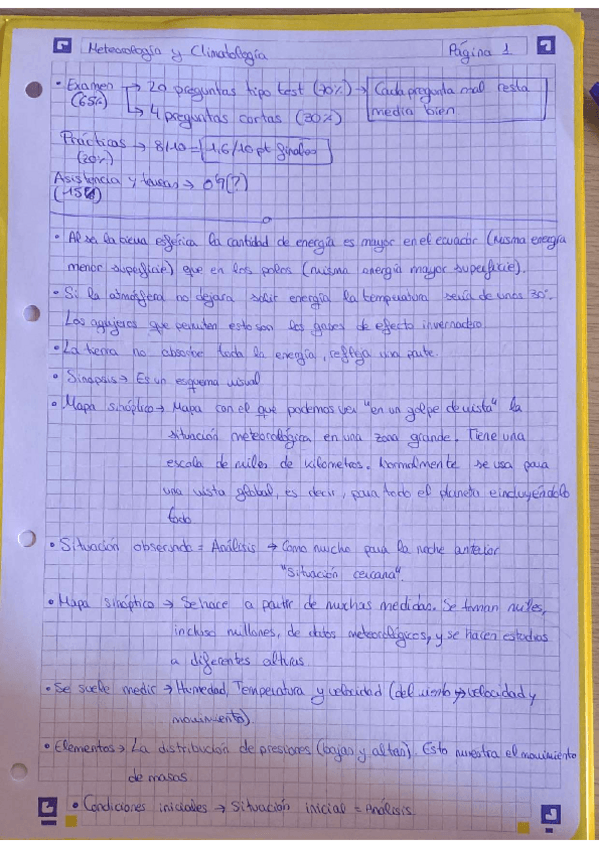 Meteorología y Climatología Página 1
• Examen → 20 preguntas tipo test (70%) → Cada pregunta mal resta
(65%) ↳ 4 preguntas cortas (30%) media bien
Prácticas → 8/10 = 1,6/10 pt finales
(20%)
Asistencia y tareas → (?)
(15%)
• Al ser la tierra esférica la cantidad de energía es mayor en el ecuador (misma energía
menor superficie) que en los polos (misma energía mayor superficie).
• Si la atmósfera no dejara salir energía la temperatura sería de unos 30°.
Los agujeros que permiten esto son los gases de efecto invernadero.
• La tierra no absorbe toda la energía, refleja una parte.
• Sinopsis → Es un esquema visual
• Mapa sinóptico → Mapa con el que podemos ver "en un golpe de vista" la
situación meteorológica en una zona grande. Tiene una
escala de miles de kilometros. Normalmente se usa para
una vista global, es decir, para todo el planeta e incluyéndolo
todo
• Situación observada = Análisis → Como mucho para la noche anterior
"Situación cercana".
• Mapa sinóptico → Se hace a partir de muchas medidas. Se toman miles,
incluso millones, de datos meteorológicos, y se hacen estudios
a diferentes alturas
• Se suele medir → Humedad, Temperatura y velocidad (del viento → velocidad y
movimiento).
• Elementos → La distribución de presiones (bajas y altas). Esto muestra el movimiento
de masas.
• Condiciones iniciales → Situación inicial = Análisis.